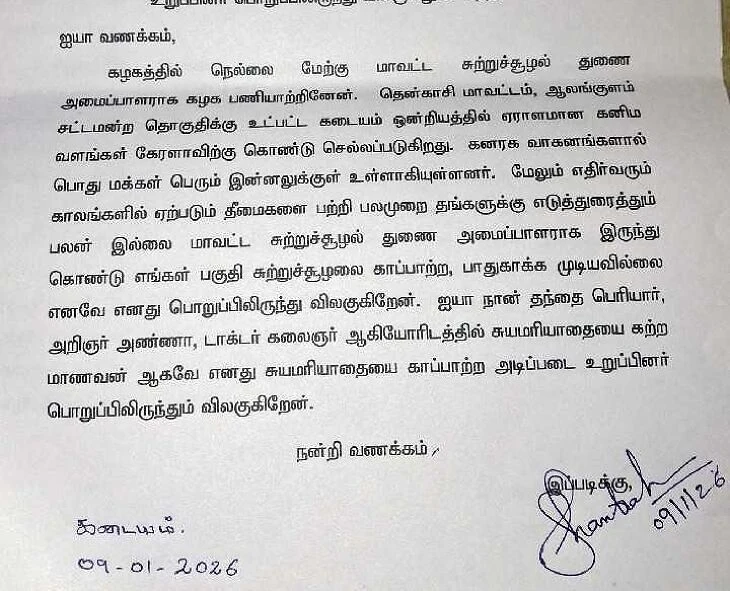 உறுப்பினர் பொறுப்பிலிருந்து
ஐயா வணக்கம்,
கழகத்தில் நெல்லை மேற்கு மாவட்ட சுற்றுச்சூழல் துணை
அமைப்பாளராக கழக பணியாற்றினேன். தென்காசி மாவட்டம், ஆலங்குளம்
சட்டமன்ற தொகுதிக்கு உட்பட்ட கடையம் ஒன்றியத்தில் ஏராளமான கனிம
வளங்கள் கேரளாவிற்கு கொண்டு செல்லப்படுகிறது. கனரக வாகனங்களால்
பொது மக்கள் பெரும் இன்னலுக்குள் உள்ளாகியுள்ளனர். மேலும் எதிர்வரும்
காலங்களில் ஏற்படும் தீமைகளை பற்றி பலமுறை தங்களுக்கு எடுத்துரைத்தும்
பலன் இல்லை மாவட்ட சுற்றுச்சூழல் துணை அமைப்பாளராக இருந்து
கொண்டு எங்கள் பகுதி சுற்றுச்சூழலை காப்பாற்ற, பாதுகாக்க முடியவில்லை
எனவே எனது பொறுப்பிலிருந்து விலகுகிறேன். ஐயா நான் தந்தை பெரியார்,
அறிஞர் அண்ணா, டாக்டர் கலைஞர் ஆகியோரிடத்தில் சுயமரியாதையை கற்ற
மாணவன் ஆகவே எனது சுயமரியாதையை காப்பாற்ற அடிப்படை உறுப்பினர்
பொறுப்பிலிருந்தும் விலகுகிறேன்.
நன்றி வணக்கம்,
இப்படிக்கு,
09/1/26
கடையம்.
09-01-2026